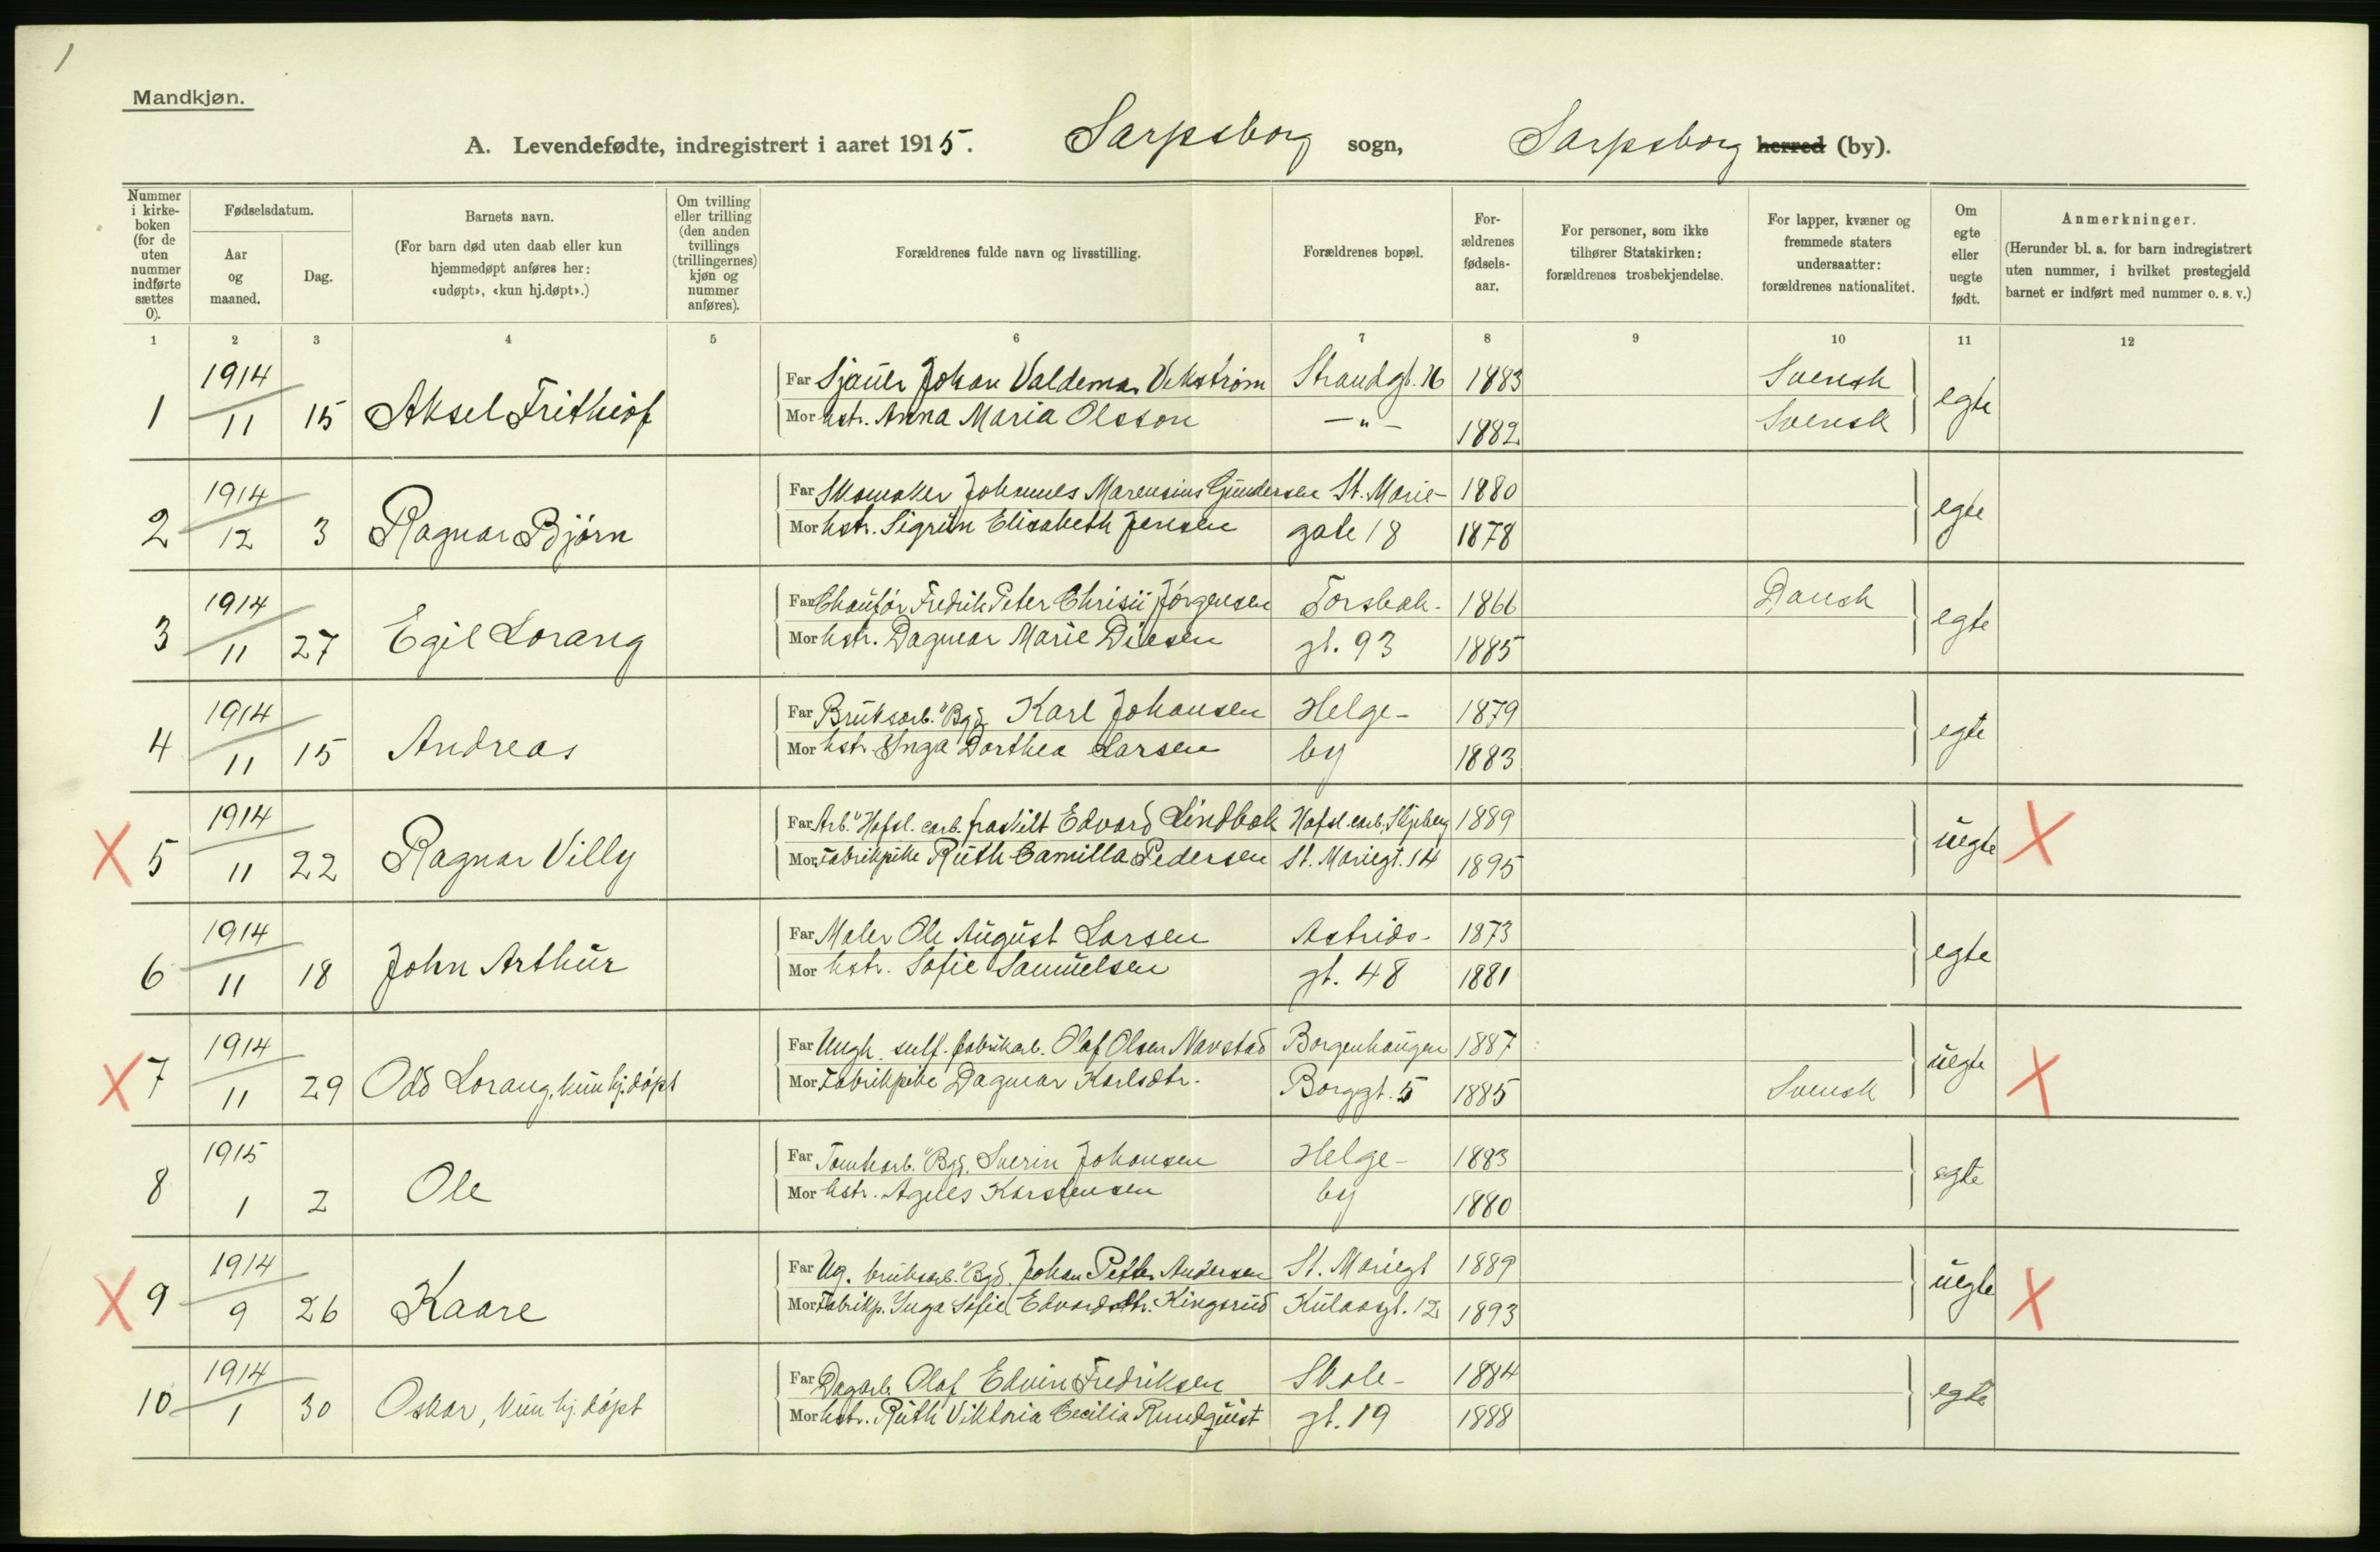 1
Mandkjøn.
A. Levendefødte, indregistrert i aaret 1915. Sarpsborg sogn, Sarpsborg herred (by).
Nummer i kirkeboken (for de uten nummer indførte sættes 0).
Fødselsdatum.
Aar og maaned.
Dag.
Barnets navn.
(For barn død uten daab eller kun hjemmedøpt anføres her: «udøpt», «kun hj.døpt».)
Om tvilling eller trilling (den anden tvillings (trillingernes) kjøn og nummer anføres).
Forældrenes fulde navn og livsstilling.
Forældrenes bopæl.
Forældrenes fødselsaar.
For personer, som ikke tilhører Statskirken: forældrenes trosbekjendelse.
For lapper, kvæner og fremmede staters undersaatter: forældrenes nationalitet.
Om egte eller uegte født.
Anmerkninger.
(Herunder bl. a. for barn indregistrert uten nummer, i hvilket prestegjeld barnet er indført med nummer o. s. v.)
1 2 3 4 5 6 7 8 9 10 11 12
1 1914 11 15 Aksel Frithiof
Far Sjauer Johan Valdemar Vikstrøm Strandgt. 16 1883 Svensk
Mor hstr. Anna Maria Olsson — " — 1882 Svensk egte
2 1914 12 3 Ragnar Bjørn
Far Skomaker Johannes Marensius Gundersen St. Marie- 1880
Mor hstr. Sigrun Elisabeth Jensen gate 18 1878 egte
3 1914 11 27 Egil Lorang
Far Chaufør Fredrik Peter Jørgensen Torsbak- 1866 Dansk
Mor hstr. Dagmar Marie Diesen gt. 93 1885 egte
4 1914 11 15 Andreas
Far Bruksarb. "Bgd. Karl Johansen Helge- 1879
Mor hstr. Inga Dorthea Larsen by 1883 egte
X 5 1914 11 22 Ragnar Villy
Far Arb. "Hafsl. carb. fraskilt Edvard Lindbak Hafsl. carb. Skjeberg 1889
Mor Fabrikpike Ruth Camilla Pedersen St. Mariegt. 14 1895 uegte X
6 1914 11 18 John Arthur
Far Maler Ole August Larsen Astrids- 1873
Mor hstr. Sofie Samuelsen gt. 48 1881 egte
X 7 1914 11 29 Odd Lorang, kun hj. døpt
Far Ungk. sulf. fabrikarb. Olaf Olsen Navestad Borgenhaugen 1887
Mor Fabrikpike Dagmar Karlsdtr. Borggt. 5 1885 Svensk uegte X
8 1915 1 2 Ole
Far Tomtearb. "Bgd. Sverin Johansen Helge- 1883
Mor hstr. Agnes Karstensen by 1880 egte
X 9 1914 9 26 Kaare
Far Ug. bruksarb. "Bgd. Johan Petter Andersen St. Mariegt 1889
Mor Fabrikp. Inga Sofie Edvardsdtr. Kingsrud Kulaasgt. 12 1893 uegte X
10 1914 1 30 Oskar, kun hj. døpt
Far Dagarb. Olaf Edvin Fredriksen Skole- 1884
Mor hstr. Ruth Viktoria Cecilia Rundquist gt. 19 1888 egte